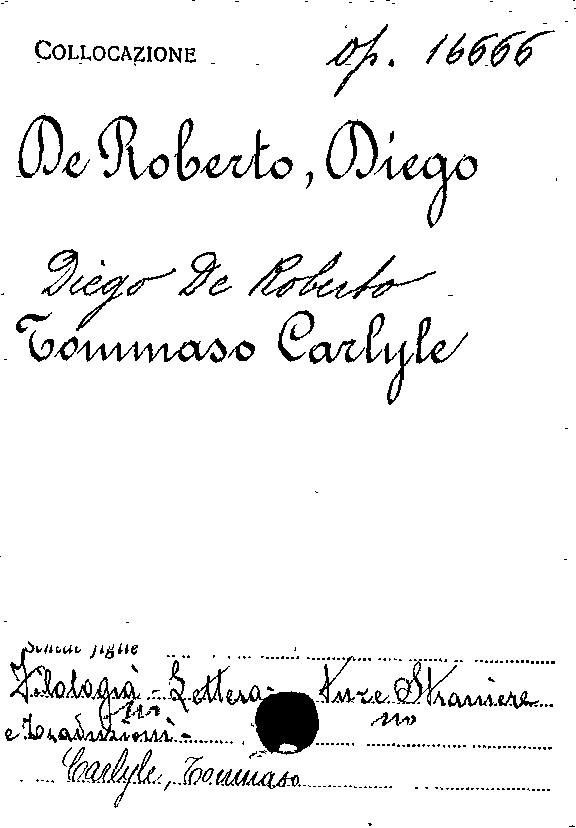 COLLOCAZIONE Op. 16666
De Roberto, Diego
Diego De Roberto
Tommaso Carlyle
Schede figlie
Filologia - Lettera- ture Straniere
no no
e Traduzioni -
Carlyle, Tommaso